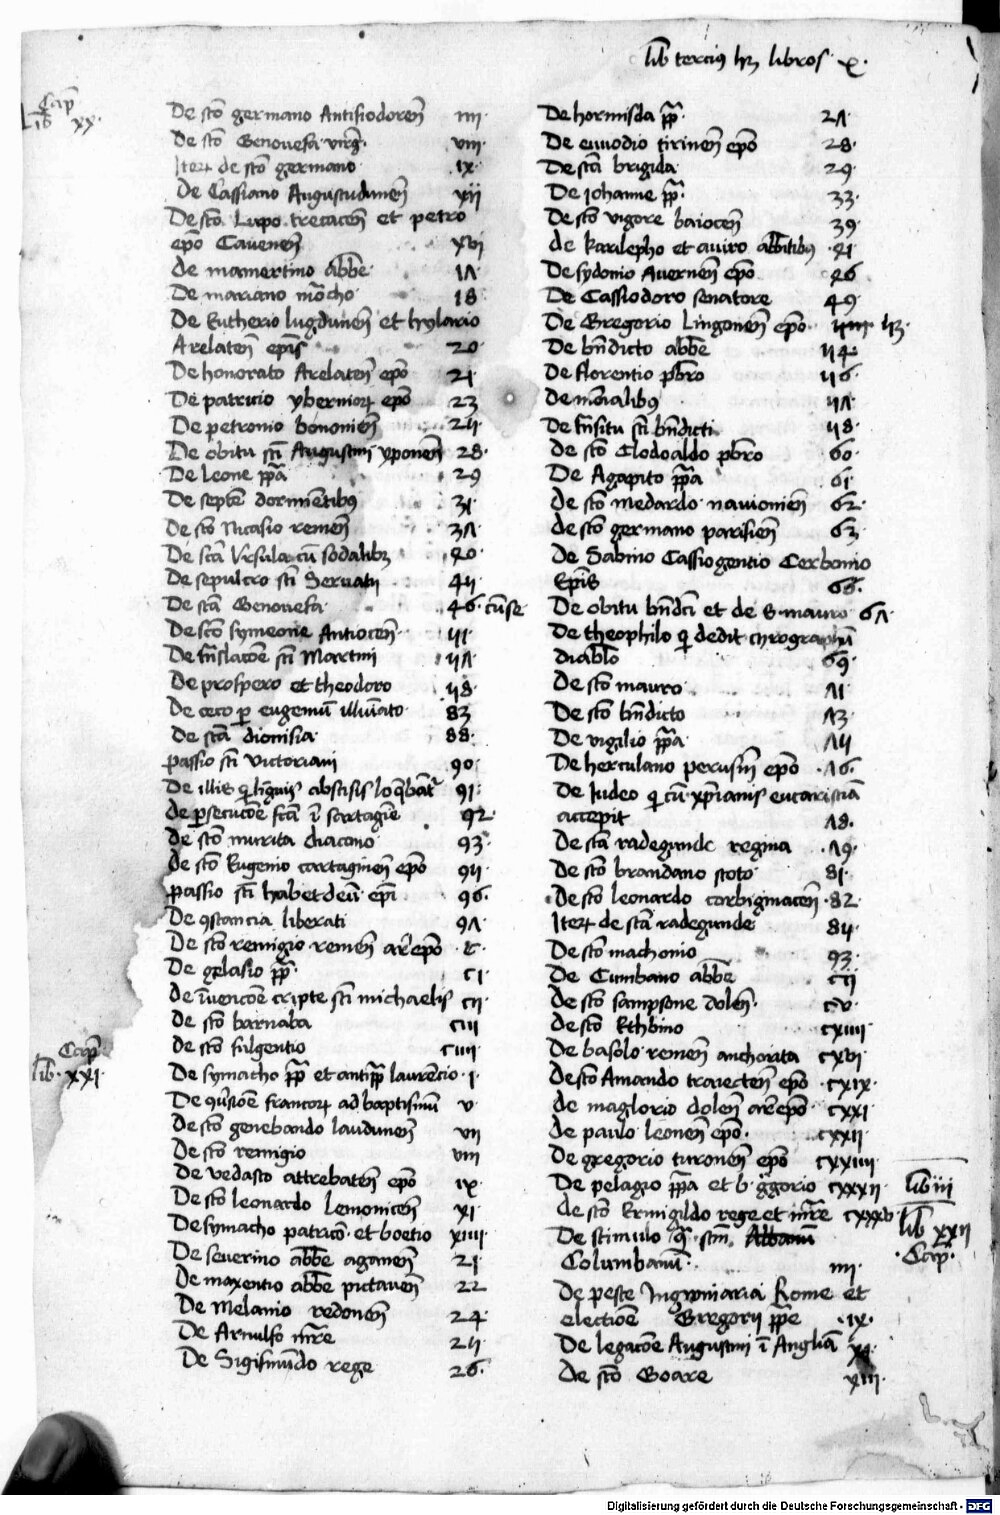 lib̄ tercius hꝫ libros x.
Cap̄
Lib xx.
De sc̄o germano Antisiodoren̄ iiii
De sc̄o Genouefa virḡ. viii.
Iteꝝ de sc̄o germano .ix.
De Cassiano Augustudunen̄ xii
De sc̄o Lupo trecacen̄ et petro
ep̄o Cauenen̄ xvi
de mamertino abb̄e 1ʌ.
De mariano mo̅cho 18
De Eutherio lugdunen̄ et hylario
Arelaten̄ epis 20.
De honorato Arelaten̄ ep̄o 21
De patricio ybernioꝝ ep̄o 23
De petronio bononien̄ 2ɥ
De obitu sc̄i Augustini yponen̄ 28.
De leone pp̄a 29
De septē dormiētibꝰ 31.
De sc̄o Nicasio remen̄ 3ʌ
De sc̄a Vrsula cū sodalibꝫ 40.
De sepulcro sc̄i Seruatii 4ɥ
De sc̄a Genouefa 46. cū se
De sc̄o symeone Antiocen̄ ɥ1.
De tn̄slacōe sc̄i Martini ɥʌ
De prospero et theodoro ɥ8.
De ceco ꝑ eugeniū illuīato 83
De sc̄a dionisia 88.
passio sc̄i victoriani 90.
De illis q̄ linguis abscisis loq̄bat᷑ 91.
de ꝑsecucōe fc̄a ī cartagīe 92.
de sc̄o murita diacono 93.
de sc̄o Eugenio cartaginen̄ ep̄o 9ɥ
passio sc̄i habetdeū ep̄i 96.
De ꝯstancia liberati 9ʌ.
De sc̄o remigio remen̄ ar̄ep̄o .c.
De gelasio pp̄. ci
de īuencōe cripte sc̄i michaelis cii
De sc̄o barnaba ciii
De sc̄o fulgentio ciiii
Cap̄
lib. xxi.
De symacho pp̄ et antipp̄ laurēcio .i.
De ꝯūsiōe francoꝝ ad baptismū v.
De sc̄o genebaudo laudunen̄ vii
De sc̄o remigio viii
De vedasto attrebaten̄ ep̄o ix.
De sc̄o leonardo lemouicen̄ xi.
De symacho patricō. et boetio xiiii
De seuerino abb̄e aganen̄ 21.
De maxentio abb̄e pictauen̄ 22
De Melanio redonen̄ 24.
De Arnulfo mr̄e 2ɥ
De Sigismūdo rege 26.
De hormisda pp̄. 2ʌ.
De euuodio tirinen̄ ep̄o 28.
De sc̄a brigida 29.
De iohanne pp̄. 33.
De sc̄o vigore baiocen̄ 39.
de karilepho et auiro abb̄tibꝰ .41.
De sydonio Auernen̄ ep̄o 46
De Cassiodoro senatore 49.
De Gregorio Lingonen̄ ep̄o. iiii. hꝫ.
De bn̄dicto abb̄e ɥ4.
De florentio pb̄ro ɥ6.
De mo̅ialibꝰ ɥʌ.
De tn̄situ sc̄i bn̄dicti ɥ8.
De sc̄o Clodoaldo pb̄ro 60.
De Agapito pp̄a 61.
de sc̄o medardo nouionien̄ 62.
de sc̄o germano parisien̄ 63.
De Sabino Cassiogentio Cerbonio
Ep̄is 66.
De obitu bn̄dc̄i et de S. mauro 6ʌ.
De theophilo q̄ dedit cyrographū
diabolo 69.
De sc̄o mauro. ʌ1.
De sc̄o bn̄dicto ʌ3.
De vigilio pp̄a ʌɥ
De herculano perusin̄ ep̄o .ʌ6.
De Iudeo q̄ cū xp̄ianis eucaristiā
accepit ʌ8.
De sc̄a radegunde regina .ʌ9.
De sc̄o brandano scoto 81.
De sc̄o leonardo corbiginacen̄ .82
Iteꝝ de sc̄a radegunde 8ɥ.
De sc̄o machonio 93.
De Cumbano abb̄e cii
De sc̄o sampsone dolen̄. cv.
De sc̄o Ethbino cxiiii
De basolo remen̄ anchorita cxvi.
De sc̄o Amando traiecten̄ ep̄o .cxix.
de maglorio dolen̄ ar̄ep̄o cxxi.
de paulo leonen̄ ep̄o. cxxii
De gregorio turonen̄ ep̄o cxxiiii
De pelagio pp̄a et b. g̅gorio cxxxii
de sc̄o Ermigildo rege et mr̄e cxxxv
lib iii
lib xxii
.Cap̄.
De stimulo ꝯ. sc̄m Albanū
Columbanū. iiii.
De peste Inguinaria Rome et
electiōe Gregorii pp̄e .ix.
De legacōe Augustini ī Angliā xi.
De sc̄o Goare xiii.
Digitalisierung gefördert durch die Deutsche Forschungsgemeinschaft - DFG